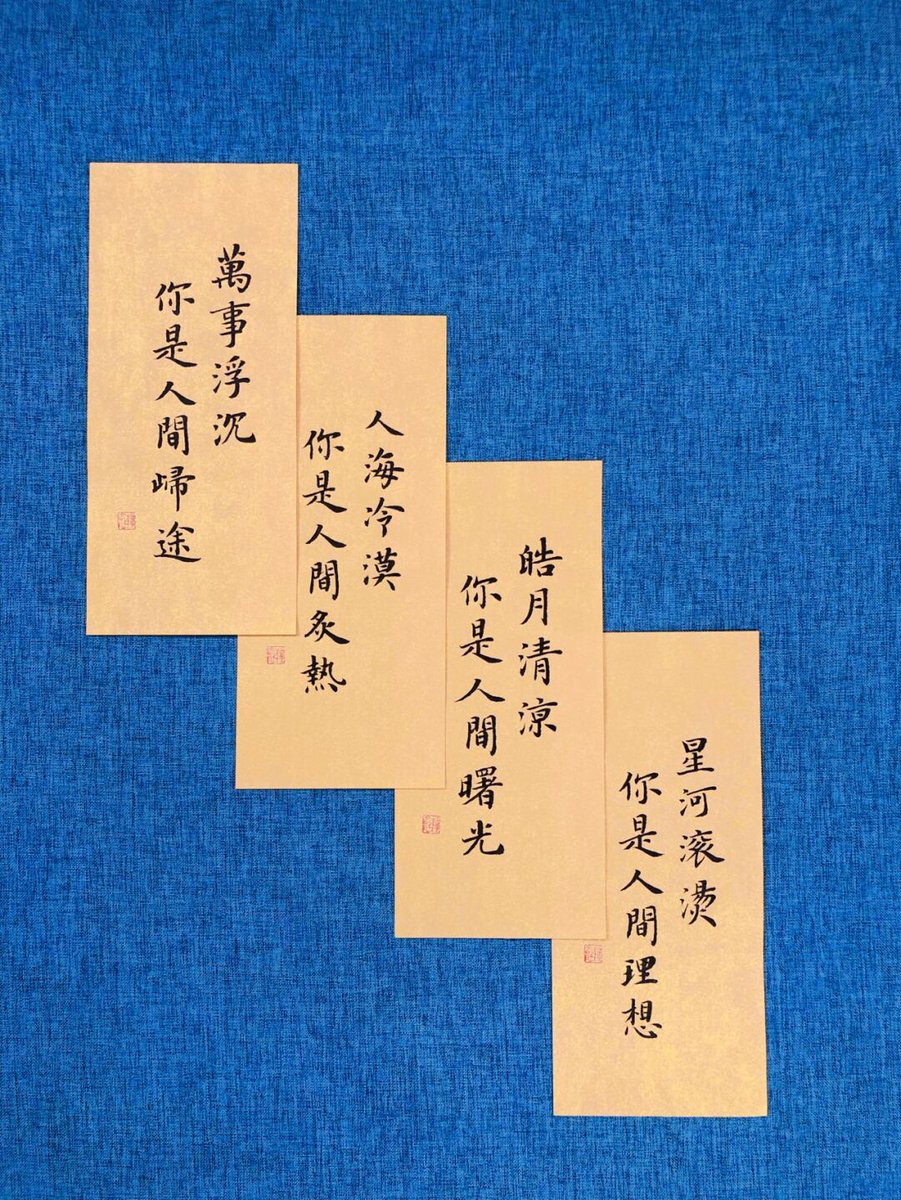 萬事浮沉
你是人間歸途
人海冷漠
你是人間炙熱
皓月清涼
你是人間曙光
星河滚燙
你是人間理想